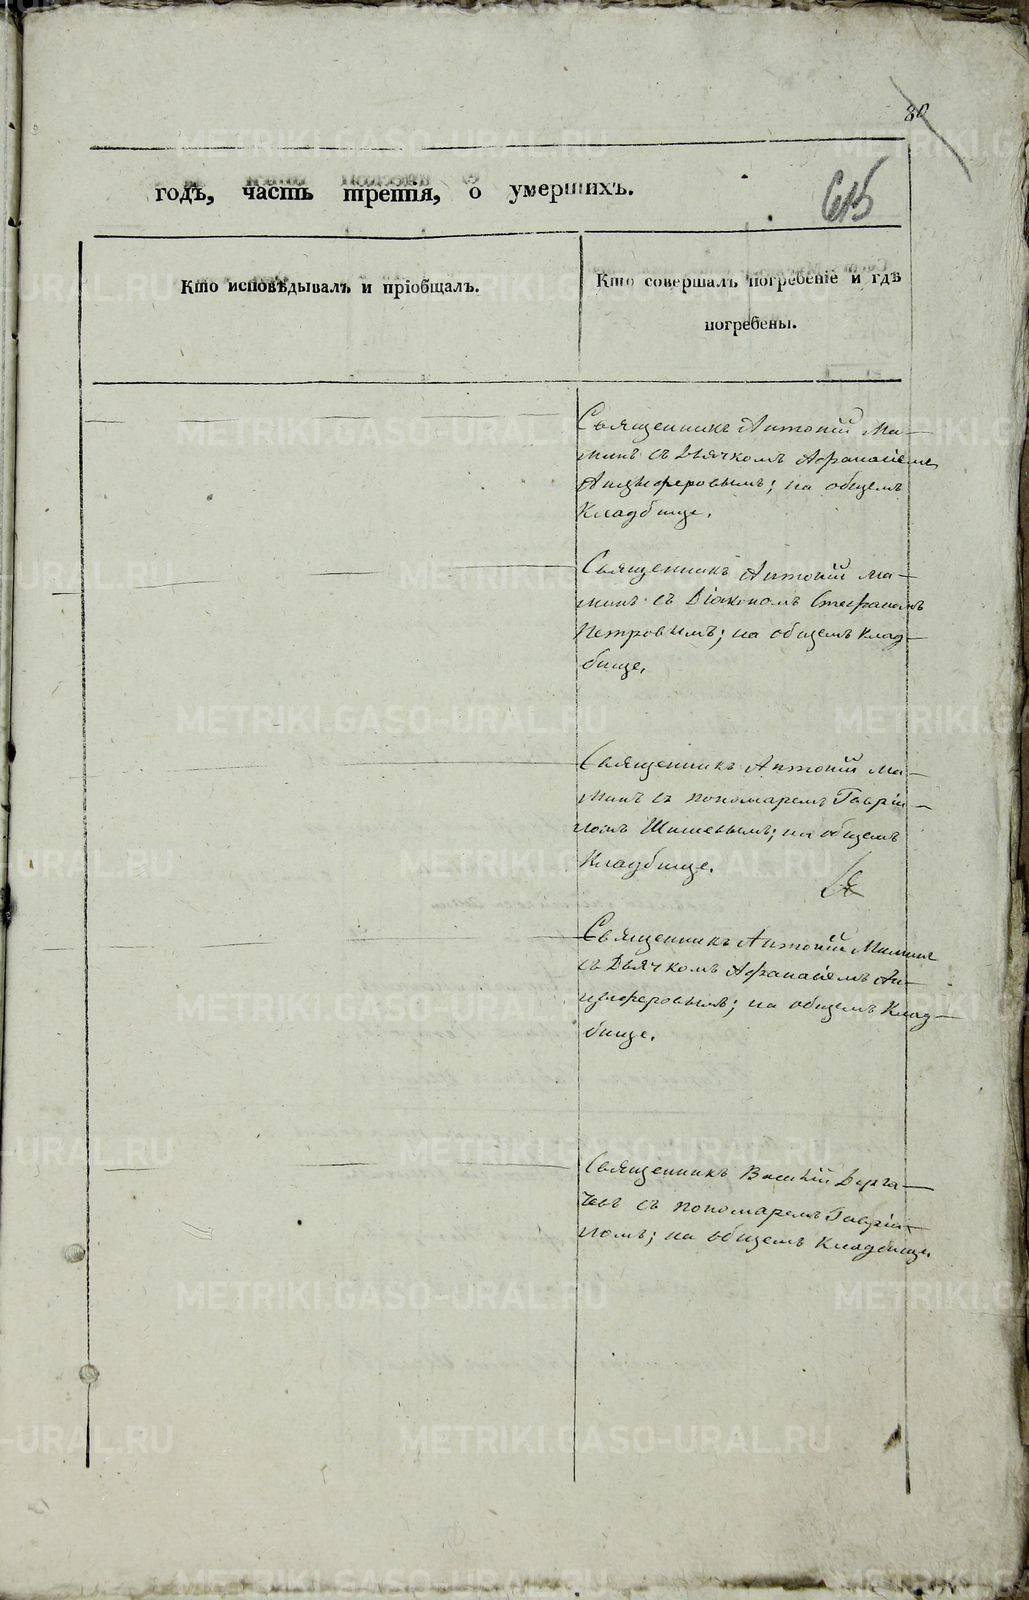 80
615
годъ, часть третія, о умершихъ.
Кто исповѣдывалъ и пріобщалъ.
Кто совершалъ погребеніе и гдѣ
погребены.
Священникъ Антоній Ма-
минъ съ Дьячкомъ Афанасіемъ
Анциферовымъ; на общемъ
Кладбище.
Священникъ Антоній Ма-
минъ съ Діакономъ Стефаномъ
Петровымъ; на общемъ Клад-
бище.
Священникъ Антоній Ма-
минъ съ пономаремъ Гаврі-
ломъ Шишевымъ; на общемъ
Кладбище.
Священникъ Антоній Маминъ
съ Дьячкомъ Афанасіемъ Ан-
циферовымъ; на общемъ Клад-
бище.
Священникъ Василій Дерга-
чевъ съ пономаремъ Гаврі-
ломъ; на общемъ Кладбище.
METRIKI.GASO-URAL.RU